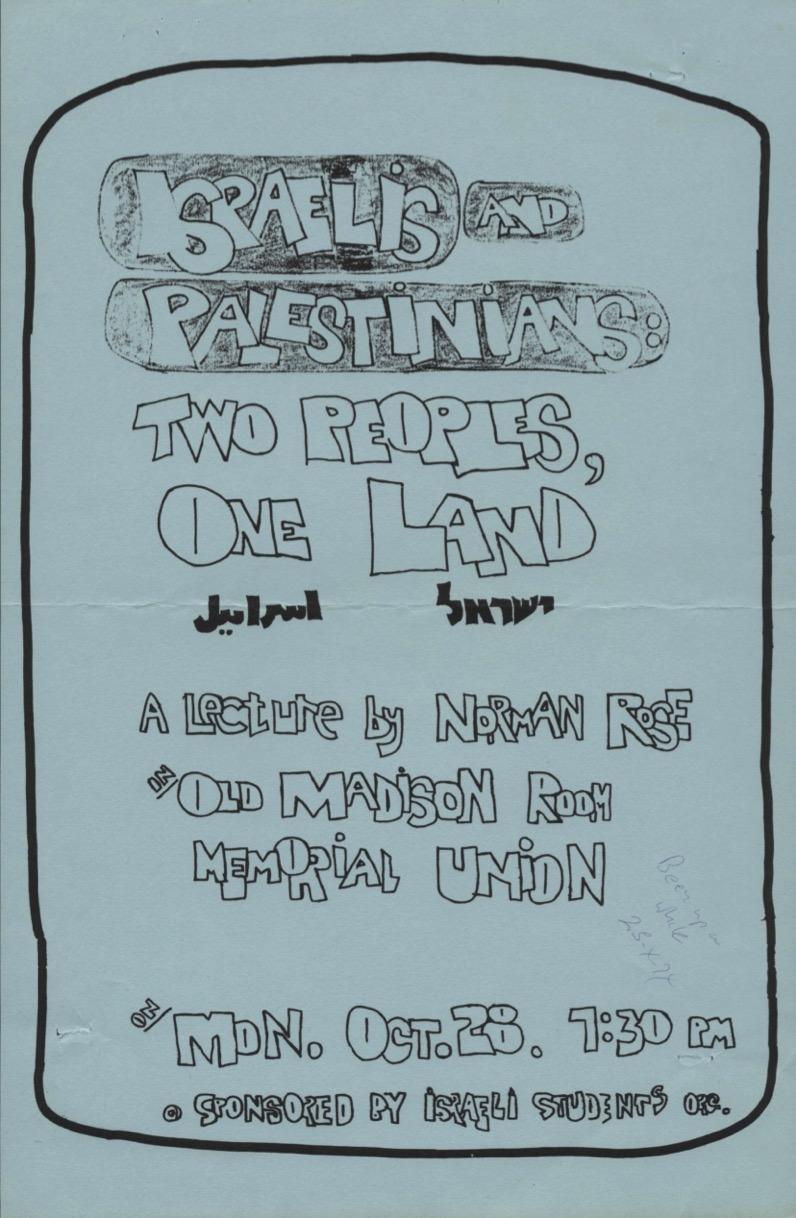 ISRAELIS AND
PALESTINIANS:
TWO PEOPLES,
ONE LAND
اسراييل ישראל
A Lecture by NORMAN ROSE
IN OLD MADISON ROOM
MEMORIAL UNION
Been up a
while
25-X-74
ON MON. OCT. 28. 7:30 PM
SPONSORED BY ISRAELI STUDENTS ORG.